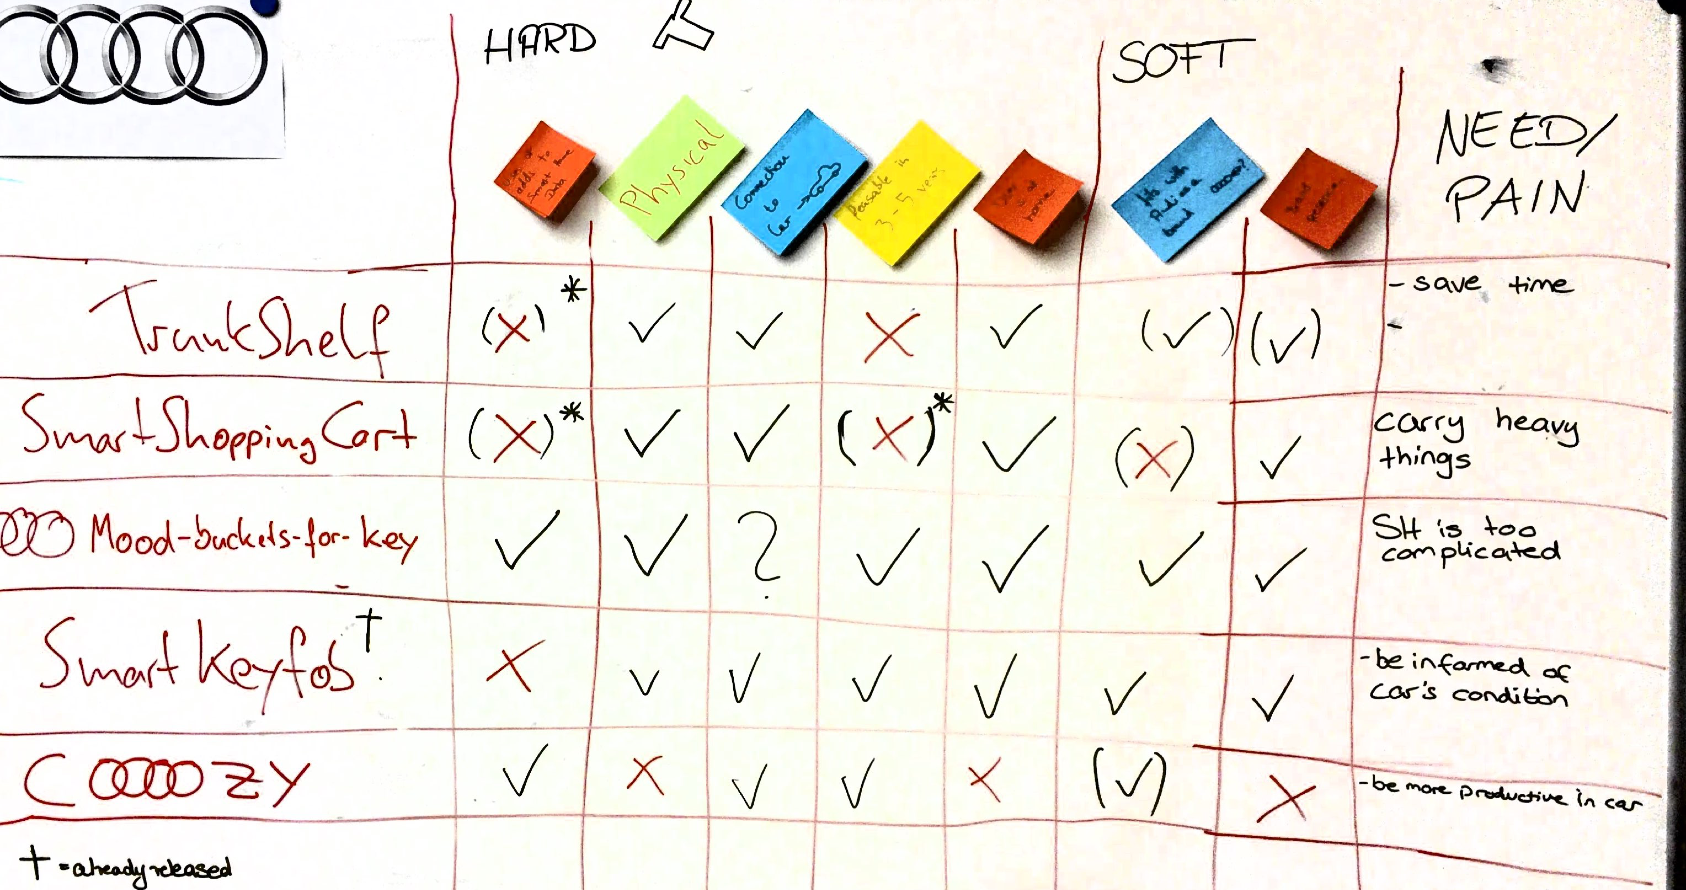 HARD
SOFT
NEED/
PAIN
Smart Home
Data
Physical
Connection
to
Car
Feasable in
3-5 years
at
home
fits with
Audi as a
brand
TrunkShelf
(x) *
✓
✓
x
✓
(✓)
(✓)
- save time
-
SmartShoppingCart
(x) *
✓
✓
(x) *
✓
(x)
✓
carry heavy
things
Mood-buckets-for-key
✓
✓
?
✓
✓
✓
✓
SH is too
complicated
Smart Keyfob †
x
✓
✓
✓
✓
✓
✓
- be informed of
car's condition
COOOOZY
✓
x
✓
✓
x
(✓)
x
- be more productive in car
† = already released